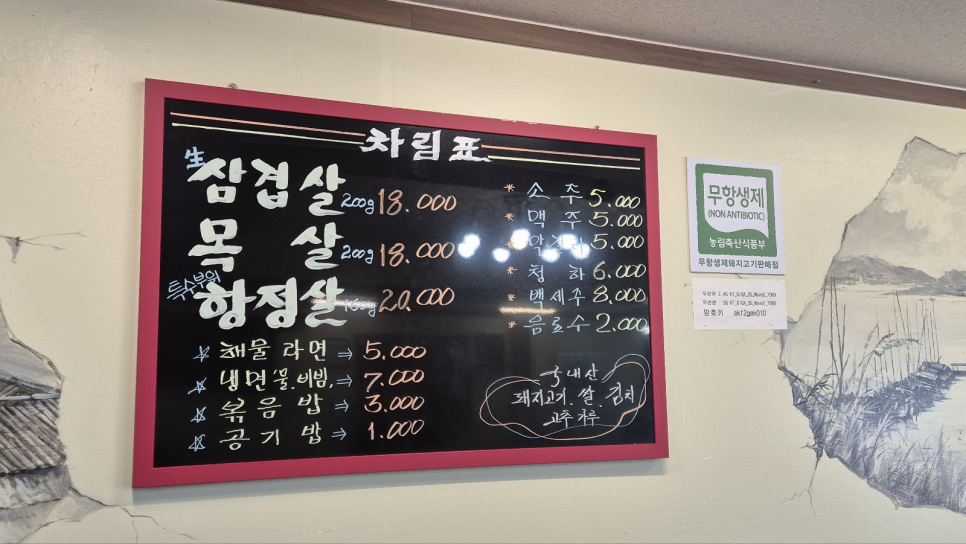 차림표
生 삼겹살 200g 18.000
목 살 200g 18.000
특수부위
항정살 20.000
☆ 해물라면 ⇒ 5.000
☆ 냉면(물,비빔, ⇒ 7.000
☆ 볶음밥 ⇒ 3.000
☆ 공기밥 ⇒ 1.000
* 소주 5.000
* 맥주 5.000
* 막걸리 5.000
* 청하 6.000
* 백세주 8.000
* 음료수 2.000
국내산
돼지고기. 쌀. 김치
고추가루
무항생제
(NON ANTIBIOTIC)
농림축산식품부
무항생제돼지고기판매점
암호키 ak12gek010